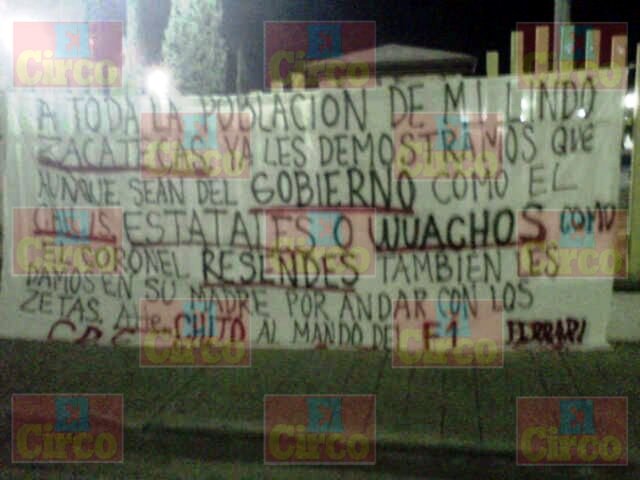 A TODA LA POBLACION DE MI LINDO
ZACATECAS. YA LES DEMOSTRAMOS QUE
AUNQUE SEAN DEL GOBIERNO COMO EL
ESTATALES O WUACHOS COMO
EL CORONEL RESENDES TAMBIEN LES
DAMOS EN SU MADRE POR ANDAR CON LOS
ZETAS. CHITO AL MANDO DEL F1 FERRARI
El Circo
El Circo
El Circo
El Circo
El Circo
El Circo
El Circo
El Circo
El Circo
El Circo
El Circo
El Circo
El Circo